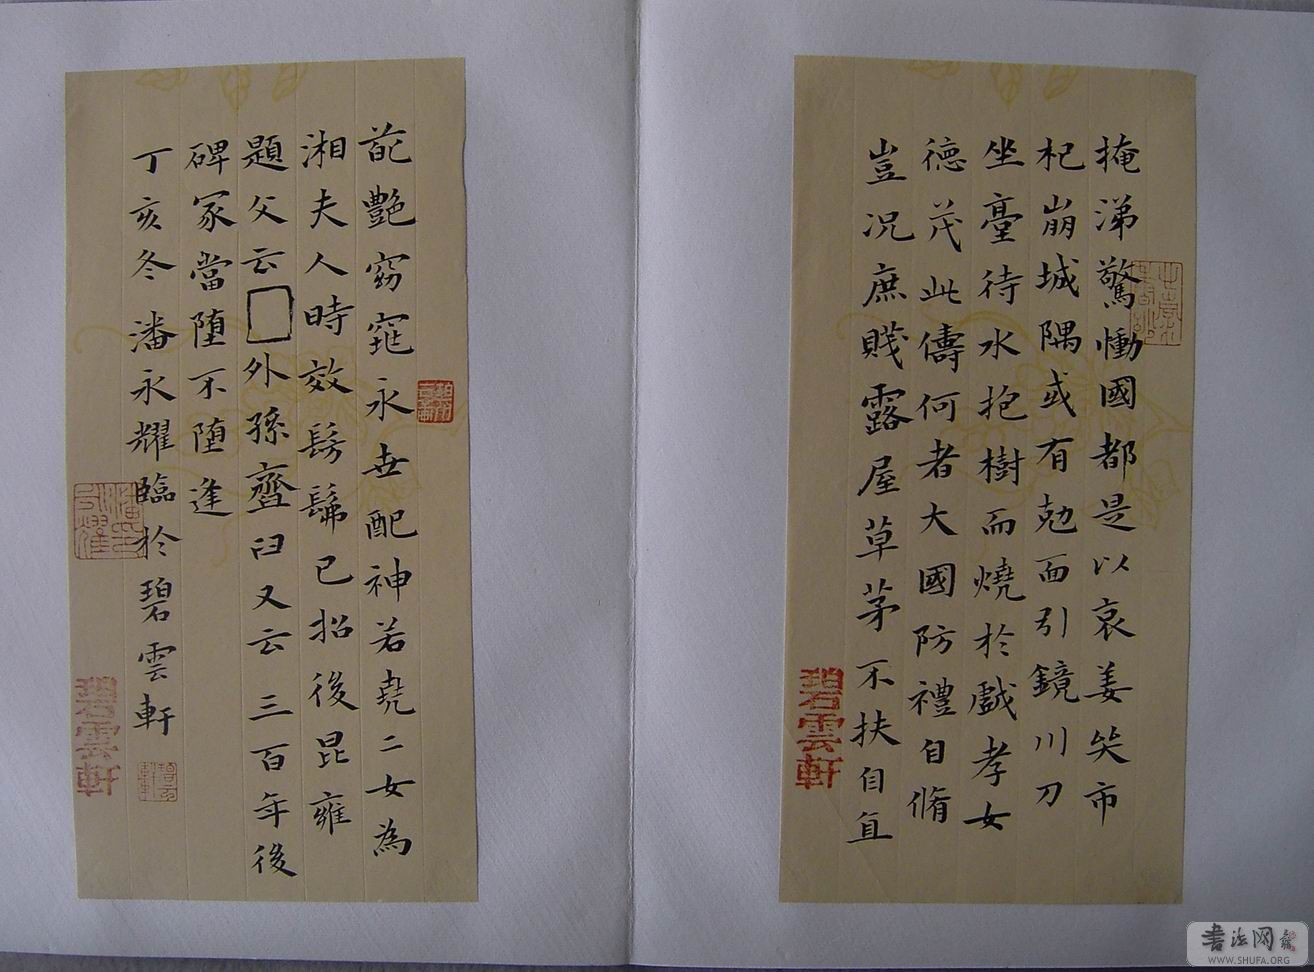 掩涕驚慟國都是以哀姜哭市
杞崩城隅或有尅面引鏡川刀
坐臺待水抱樹而燒於戲孝女
德茂此儔何者大國防禮自脩
豈况庶賤露屋草茅不扶自直
碧雲軒
葩艷窈窕永世配神若堯二女為
湘夫人時效髣髴已招後昆雍
題父云□外孫齏臼又云三百年後
碑冢當墮不墮逢
丁亥冬潘永耀臨於碧雲軒
碧雲軒
书法网
WWW.SHUFA.ORG